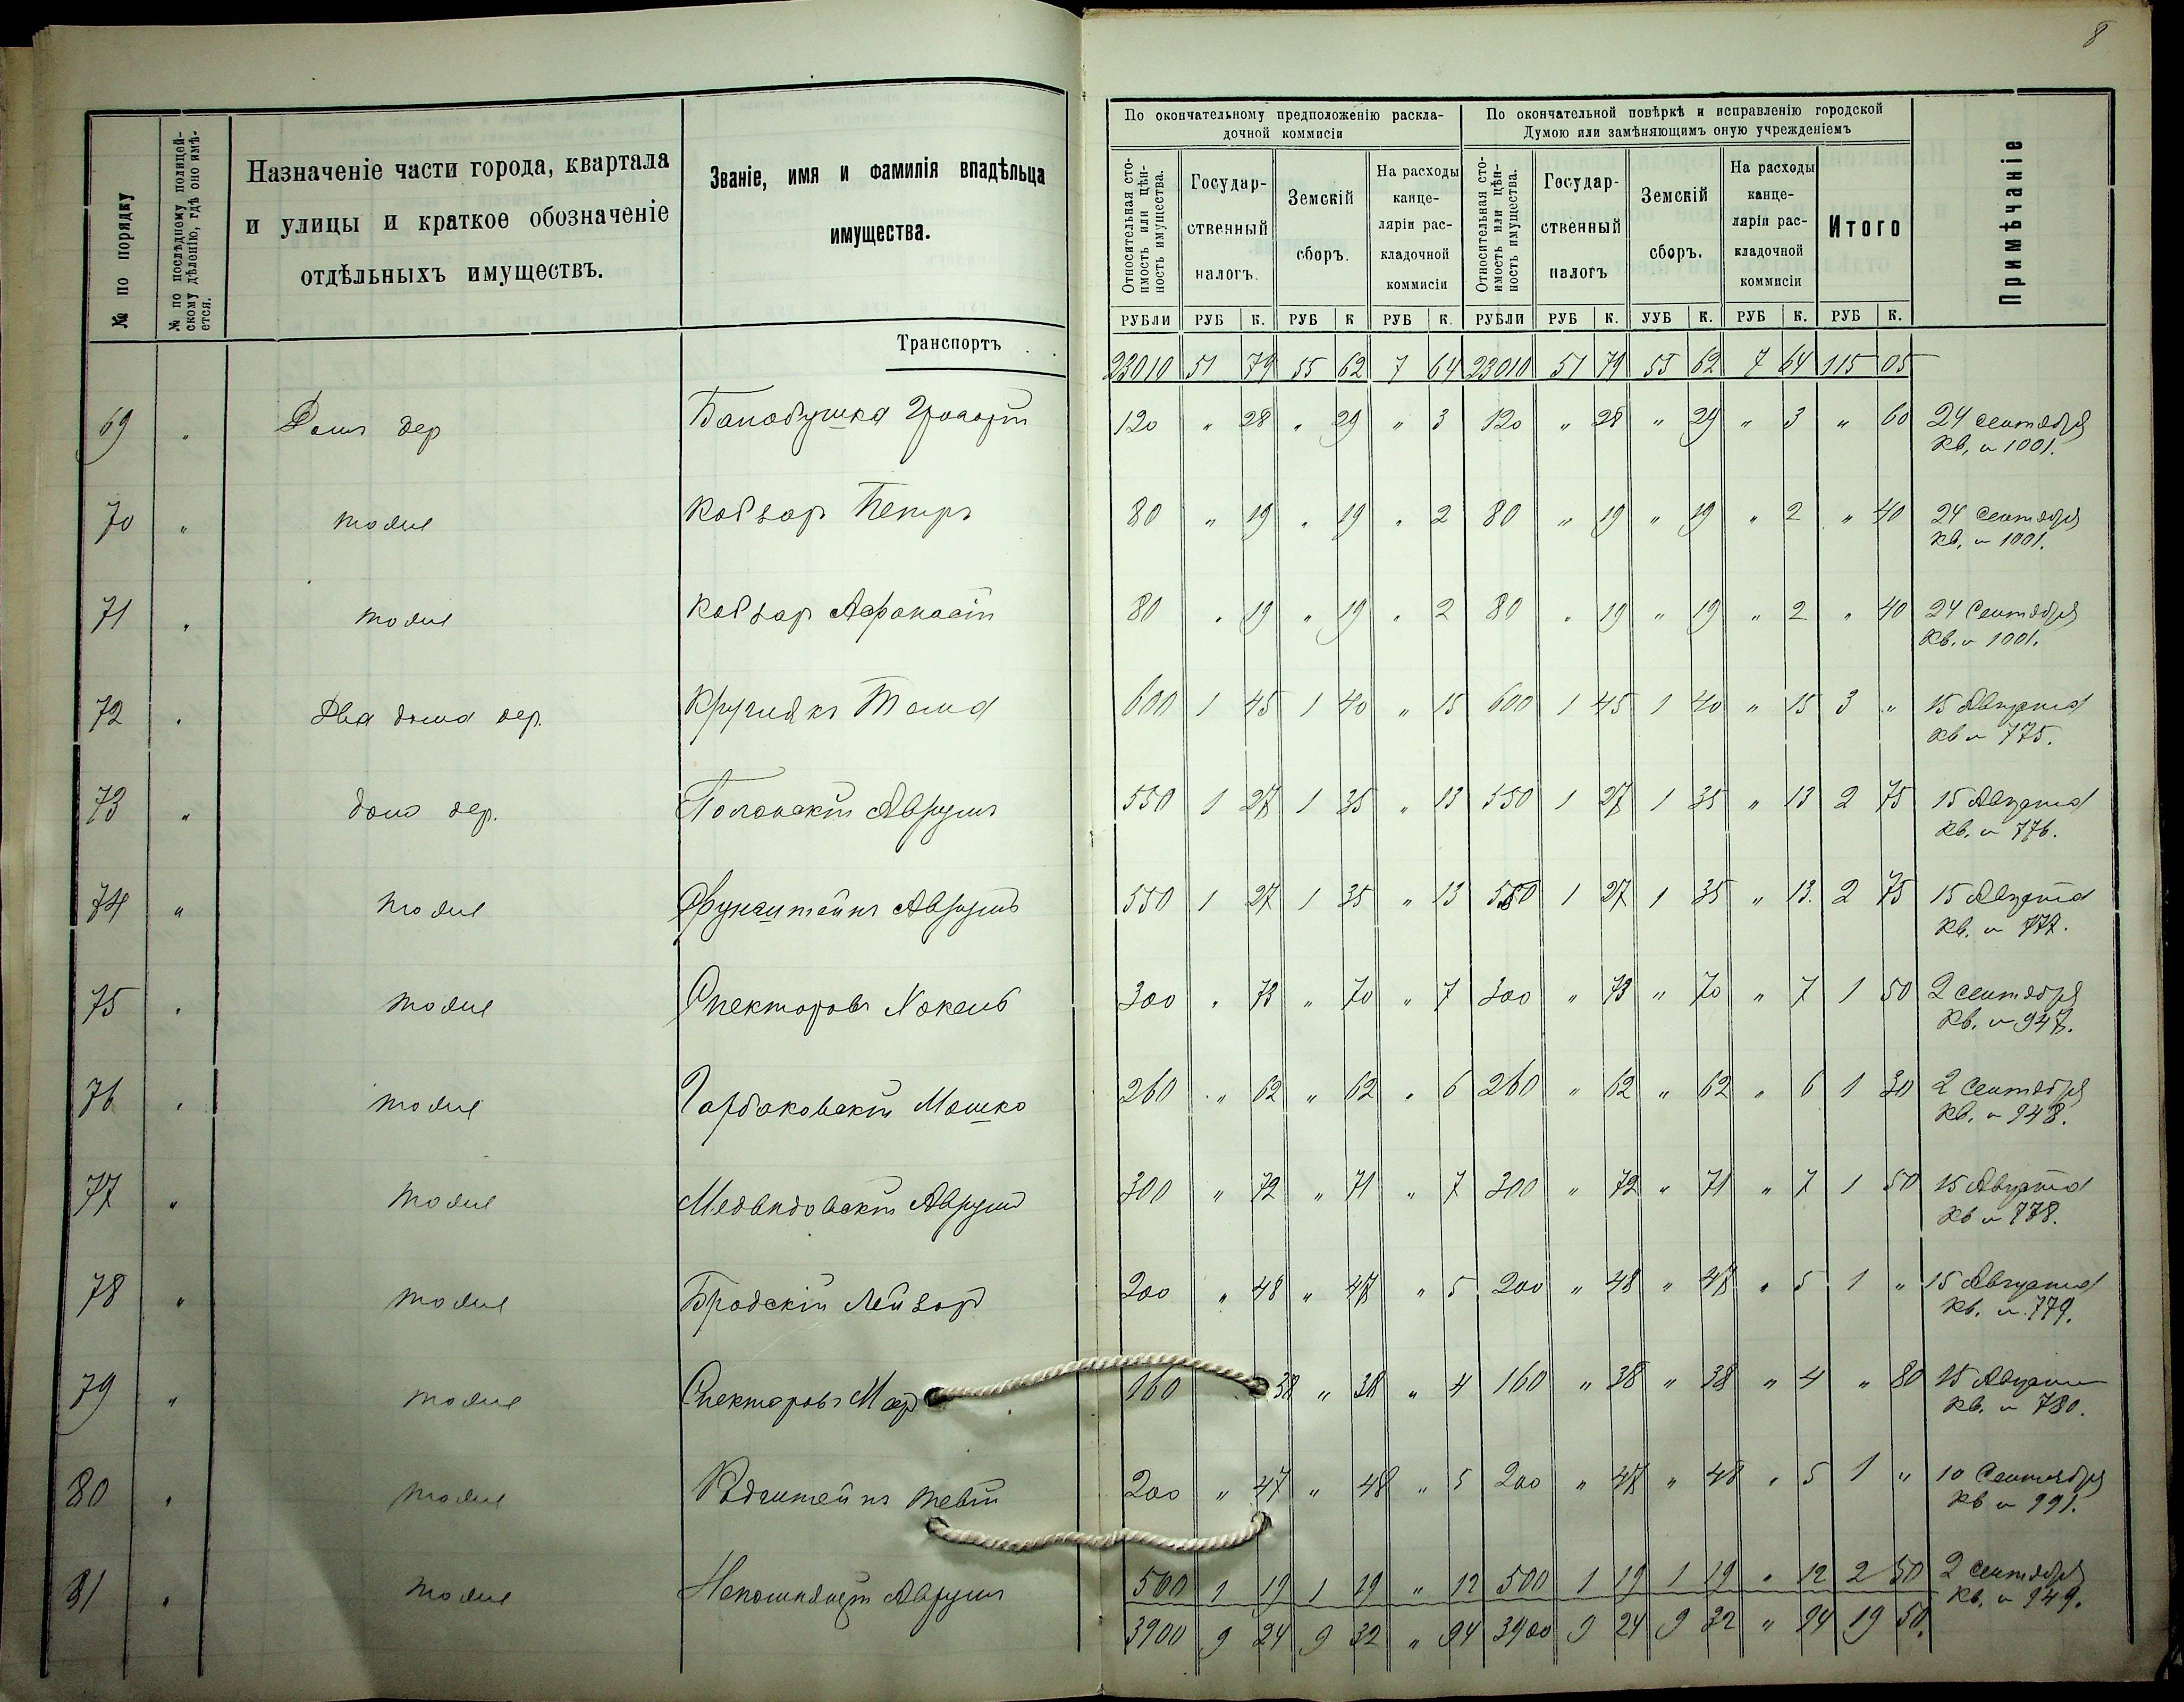 8
№ по порядку
№ по последнему полицей-
скому дѣленію, гдѣ оно имѣ-
ется.
Назначеніе части города, квартала
и улицы и краткое обозначеніе
отдѣльныхъ имуществъ.
Званіе, имя и фамилія владѣльца
имущества.
По окончательному предположенію раскла-
дочной коммисіи
По окончательной повѣркѣ и исправленію городской
Думою или замѣняющимъ оную учрежденіемъ
Относительная сто-
имость или цѣн-
ность имущества.
Государ-
ственный
налогъ.
Земскій
сборъ.
На расходы
канце-
ляріи рас-
кладочной
коммисіи
Относительная сто-
имость или цѣн-
ность имущества.
Государ-
ственный
налогъ
Земскій
сборъ.
На расходы
канце-
ляріи рас-
кладочной
коммисіи
Итого
Примѣчаніе
РУБЛИ РУБ К. РУБ К РУБ К. РУБЛИ РУБ К. УУБ К. РУБ К. РУБ К.
Транспортъ . . 23010 51 79 55 62 7 64 23010 51 79 55 62 7 64 115 05
69 " Домъ дер 120 " 28 " 29 " 3 120 " 28 " 29 " 3 " 60 24 сентября
Кв. № 1001.
70 " тоже Кобзар Петръ 80 " 19 " 19 " 2 80 " 19 " 19 " 2 " 40 24 Сентября
Кв. № 1001.
71 " тоже Кобзар Афанасій 80 " 19 " 19 " 2 80 " 19 " 19 " 2 " 40 24 Сентября
Кв. № 1001.
72 " Два дома дер. Кругликъ Тома 600 1 45 1 40 " 15 600 1 45 1 40 " 15 3 " 15 Августа
Кв № 775.
73 " домъ дер. Полонскій Аврумъ 550 1 27 1 35 " 13 550 1 27 1 35 " 13 2 75 15 Августа
Кв. № 776.
74 " тоже Аврумъ 550 1 27 1 35 " 13 550 1 27 1 35 " 13. 2 75 15 Августа
Кв. № 777.
75 " тоже Спекторовъ 300 " 73 " 70 " 7 300 " 73 " 70 " 7 1 50 2 сентября
Кв. № 947.
76 " тоже Горбаковскій Мошко 260 " 62 " 62 " 6 260 " 62 " 62 " 6 1 30 2 Сентября
Кв. № 948.
77 " тоже Медвидовскій Аврумъ 300 " 72 " 71 " 7 300 " 72 " 71 " 7 1 50 15 Августа
Кв № 778.
78 " тоже Бродскій Лейзор 200 " 48 " 47 " 5 200 " 48 " 47 " 5 1 " 15 Августа
Кв. № 779.
79 " тоже Спекторовъ 160 38 " 38 " 4 160 " 38 " 38 " 4 " 80 15 Августа
Кв. № 780.
80 " тоже 200 " 47 " 48 " 5 200 " 47 " 48 " 5 1 " 10 Сентября
Кв № 991.
81 " тоже Аврумъ 500 1 19 1 19 " 12 500 1 19 1 19 " 12 2 50 2 сентября
Кв. № 949.
3900 9 24 9 32 " 94 3900 9 24 9 32 " 94 19 50.